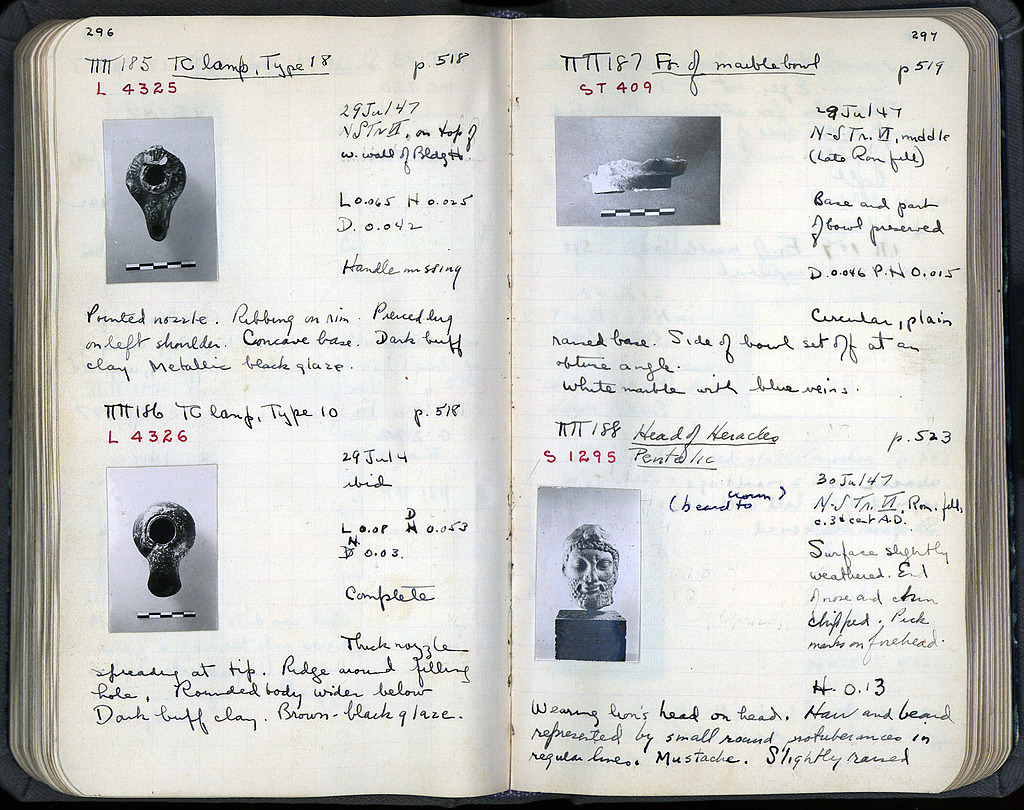 296
ΠΠ 185 TC lamp, Type 18 p. 518
L 4325
29 Jul 47
N-S Tr. VI, on top of
w. wall of Bldg H.
L 0.065 H 0.025
D. 0.042
Handle missing
Pointed nozzle. Ribbing on rim. Pierced lug
on left shoulder. Concave base. Dark buff
clay Metallic black glaze.
ΠΠ 186 TC lamp, Type 10 p. 518
L 4326
29 Jul 4
ibid
L 0.08 D 0.053
H 0.03.
Complete
Thick nozzle
spreading at tip. Ridge around filling
hole. Rounded body wider below
Dark buff clay. Brown-black glaze.
297
ΠΠ 187 Fr. of marble bowl p 519
ST 409
29 Jul 47
N-S Tr. VI, middle
(Late Rom fill)
Base and part
of bowl preserved
D. 0.046 P.H 0.015
Circular, plain
raised base. Side of bowl set off at an
obtuse angle.
White marble with blue veins.
ΠΠ 188 Head of Heracles p. 523
S 1295 Pentelic
30 Jul 47
(beard to) N-S Tr. VI, Rom. fill,
c. 3d cent A.D.
Surface slightly
weathered. End
of nose and chin
chipped. Pick
marks on forehead.
H. 0.13
Wearing lion's head on head. Hair and beard
represented by small round protuberances in
regular lines. Mustache. Slightly raised